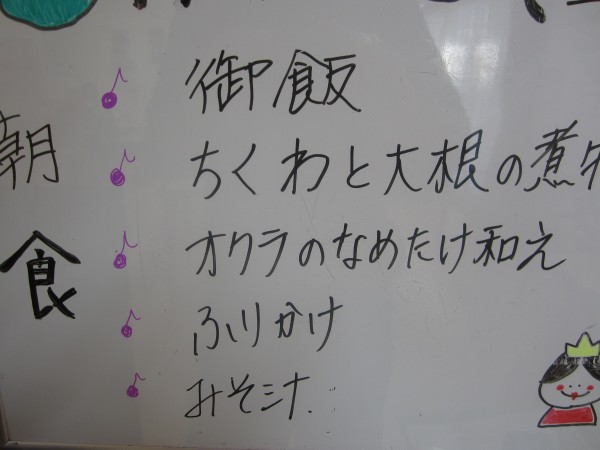 朝食
御飯
ちくわと大根の煮
オクラのなめたけ和え
ふりかけ
みそ汁